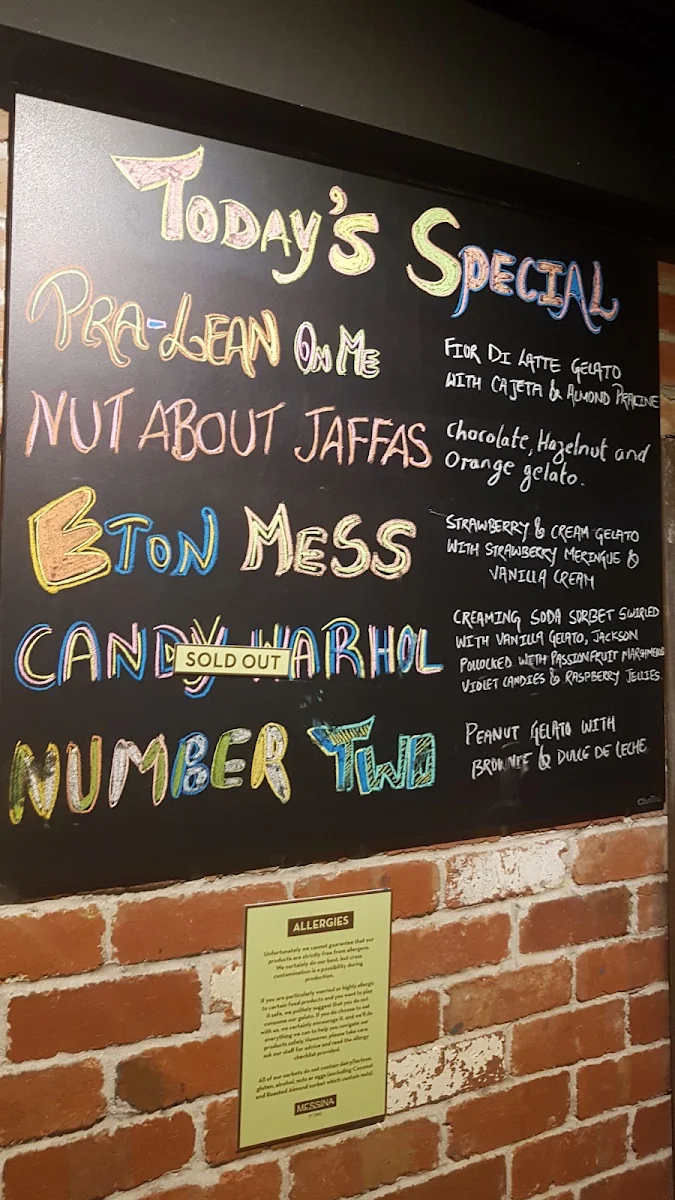 TODAY'S SPECIAL
PRA-LEAN ON ME
FIOR DI LATTE GELATO
WITH CAJETA & ALMOND PRALINE
NUT ABOUT JAFFAS
Chocolate, Hazelnut and
Orange gelato.
ETON MESS
STRAWBERRY & CREAM GELATO
WITH STRAWBERRY MERINGUE &
VANILLA CREAM
CANDY WARHOL
SOLD OUT
CREAMING SODA SORBET SWIRLED
WITH VANILLA GELATO, JACKSON
POLLOCKED WITH PASSIONFRUIT
VIOLET CANDIES & RASPBERRY JELLIES
NUMBER TWO
PEANUT GELATO WITH
BROWNIE & DULCE DE LECHE
ALLERGIES
Unfortunately we cannot guarantee that our
products are strictly free from allergens.
We certainly do our best, but cross
contamination is a possibility during
production.
If you are particularly worried or highly allergic
to certain food products and you want to play
it safe, we politely suggest that you do not
consume our gelato. If you do choose to eat
with us, we certainly encourage it, and we'll do
everything we can to help you navigate our
products safely. However, please take care,
ask our staff for advice and read the allergy
checklist provided.
All of our sorbets do not contain dairy/lactose,
gluten, alcohol, nuts or eggs (excluding Coconut
and Roasted Almond sorbet which contain nuts).
MESSINA